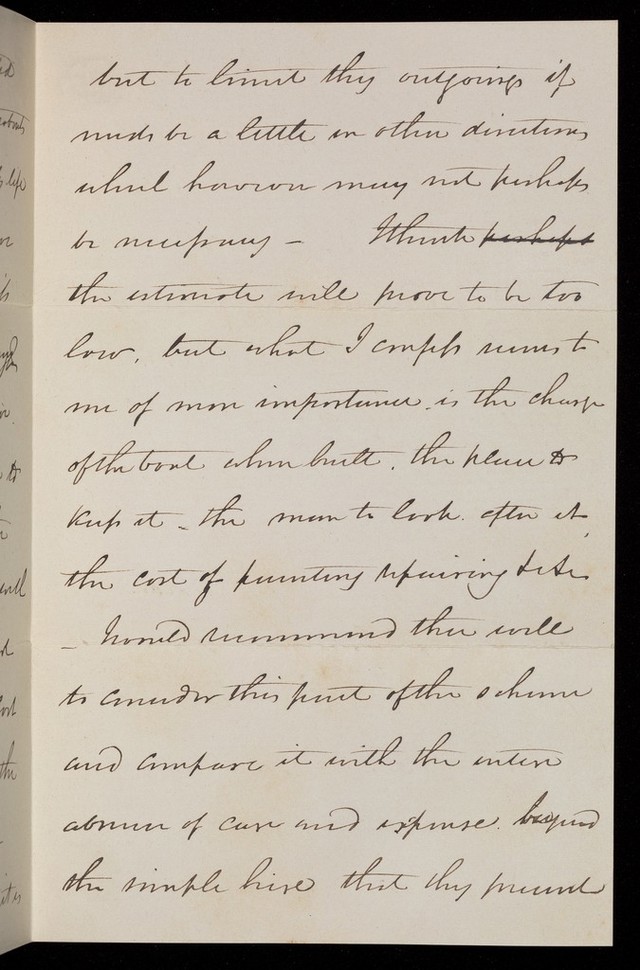 but to limit thy outgoings if
needs be a little in other directions
which however may not perhaps
be necessary – I think perhaps
the estimate will prove to be too
low, but what I confess seems to
me of more importance is the charge
of the boat when built, the place to
keep it – the man to look after it,
the cost of painting repairing &c &c
– I would recommend thee well
to consider this part of the scheme
and compare it with the entire
absence of care and expense beyond
the simple hire that thy present